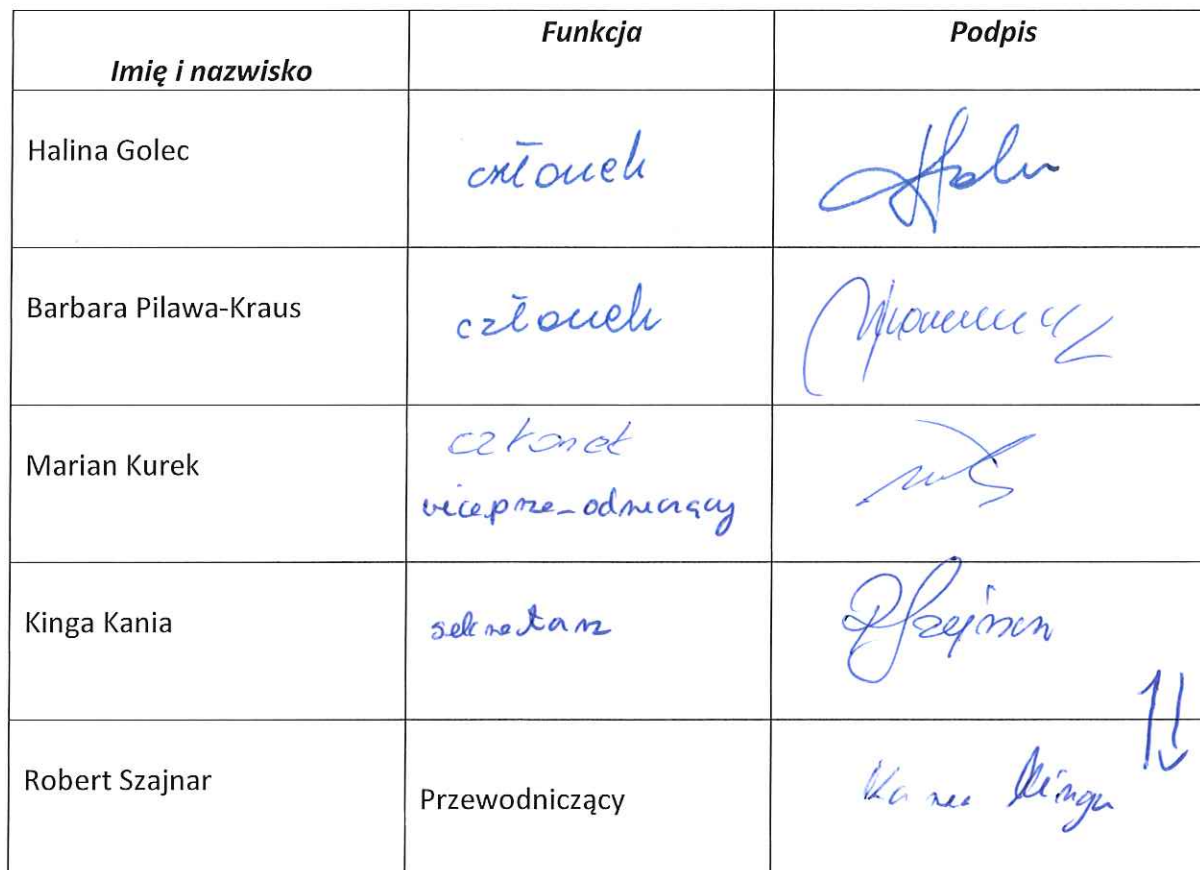 Imię i nazwisko Funkcja Podpis
Halina Golec członek
Barbara Pilawa-Kraus członek
Marian Kurek członek
viceprze_odniczący
Kinga Kania sekretarz
Robert Szajnar Przewodniczący Kania Kinga